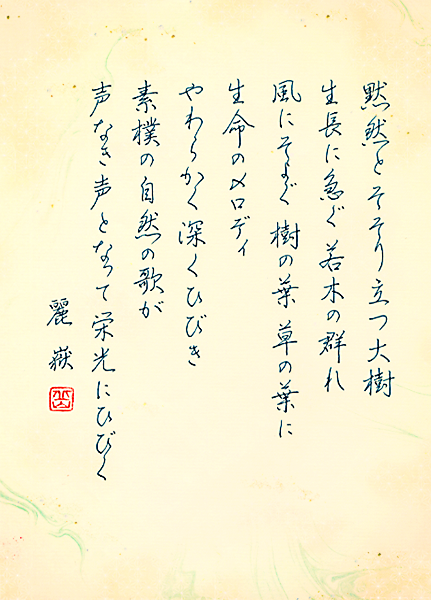 黙然とそそり立つ大樹
生長に急ぐ若木の群れ
風にそよぐ樹の葉草の葉に
生命のメロディ
やわらかく深くひびき
素樸の自然の歌が
声なき声となって栄光にひびく
麗嶽